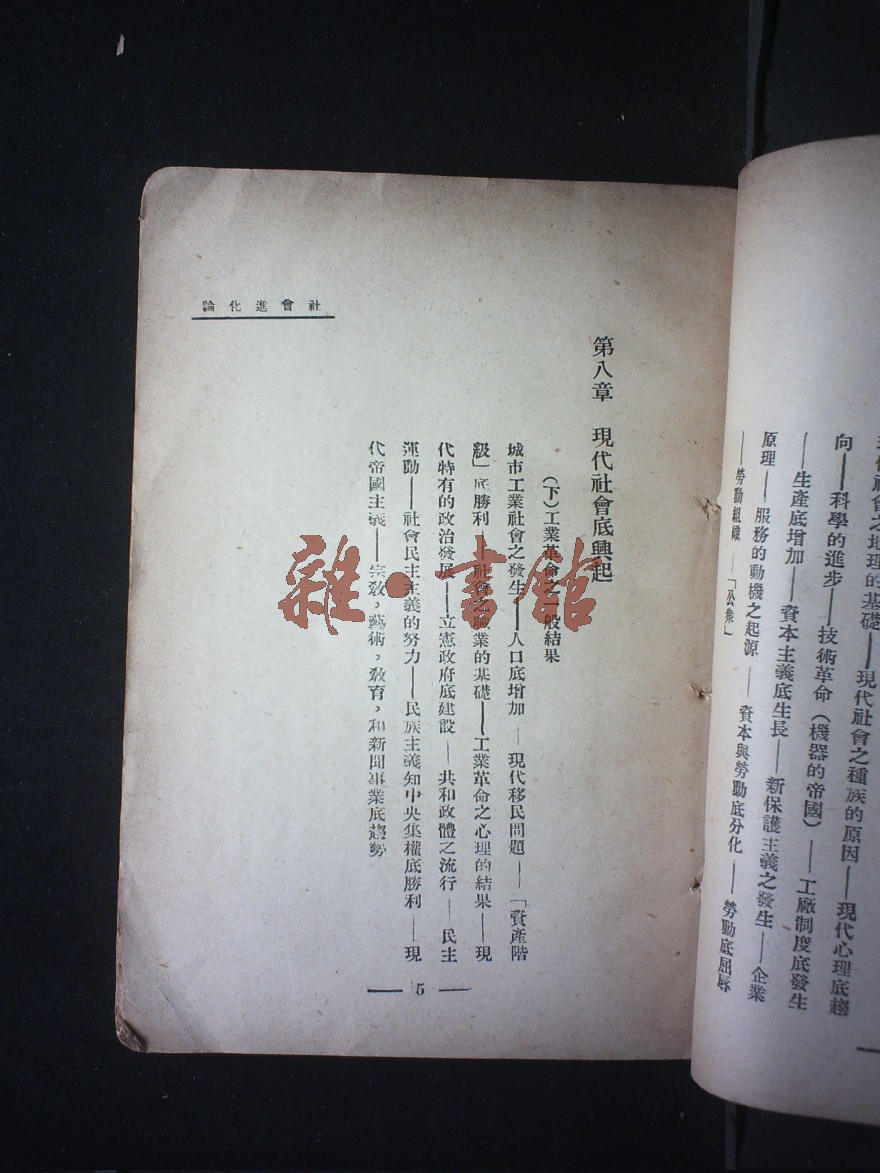 向——科學的進步——技術革命（機器的帝國）——工廠制度底發生
——生產底增加——資本主義底生長——新保護主義之發生——企業
原理——服務的動機之起源——資本與勞動底分化——勞動底屈辱
——勞動組織——「公衆」
社會進化論
第八章　現代社會底興起
（下）工業革命之一般結果
城市工業社會之發生——人口底增加——現代移民問題——「資產階
級」底勝利——社會之職業的基礎——工業革命之心理的結果——現
代特有的政治發展——立憲政府底建設——共和政體之流行——民主
運動——社會民主主義的努力——民族主義知中央集權底勝利——現
代帝國主義——宗敎，藝術，敎育，和新聞事業底趨勢
5
雜·書館